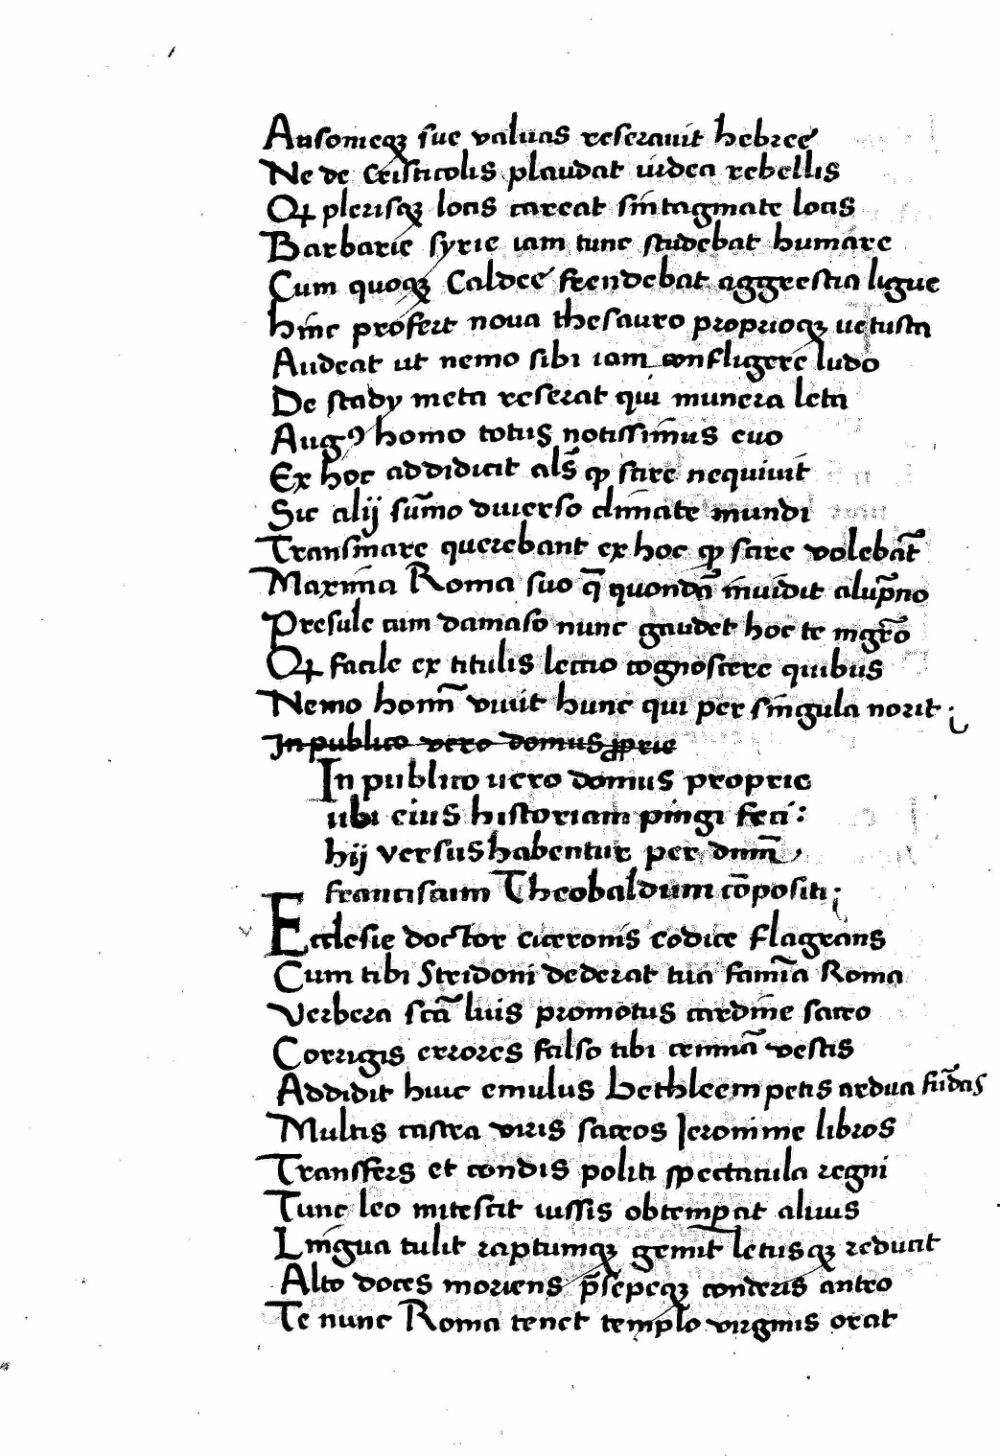 Ausonieqꝫ sue valuas reserauit hebree
Ne de cristicolis plaudat iudea rebellis
Qđ plerisqꝫ locis careat sintagmate locis
Barbarie syrie iam tunc studebat humare
Cum quoqꝫ Caldee frendebat aggrestia ligue
hinc profert noua thesauro proprioqꝫ uetusta
Audeat ut nemo sibi iam confligere ludo
De stady meta reserat qui munera leta
Augꝰ homo totus notissim̄us euo
Ex hoc addidicit als̄ qp scire nequiuit
Sic alij sum̄o diuerso climate mundi
Transmare querebant ex hoc qp scire volebāt
Maxima Roma suo q̄ quondā inuidit alup̄no
Presule cum damaso nunc gaudet hoc te mḡro
Qđ facile ex titulis lectio cognoscere quibus
Nemo homi͞n viuit hunc qui per singula norit ;
In publico vero domus ꝓprie
In publico uero domus proprie
ubi eius historiam pingi feci :
hij versus habentur per dnm̄
franciscum Theobaldum cōpositi ;
Ecclesie doctor ciceronis codice flagrans
Cum tibi Stridoni dederat tua famīa Roma
Verbera scā luis promotus cardine sacro
Corrigis errores falso tibi cemnā vestis
Addidit huic emulus bethleem petis ardua fūdas
Multis castra viris sacros Jeronime libros
Transfers et condis politi spectacula regni
Tunc leo mitescit iussis obtemperat aluus
Lingua tulit raptumqꝫ gemit letusqꝫ reducit
Alto doces moriens p̄sepeqꝫ conderis antro
Te nunc Roma tenet templo virginis orat